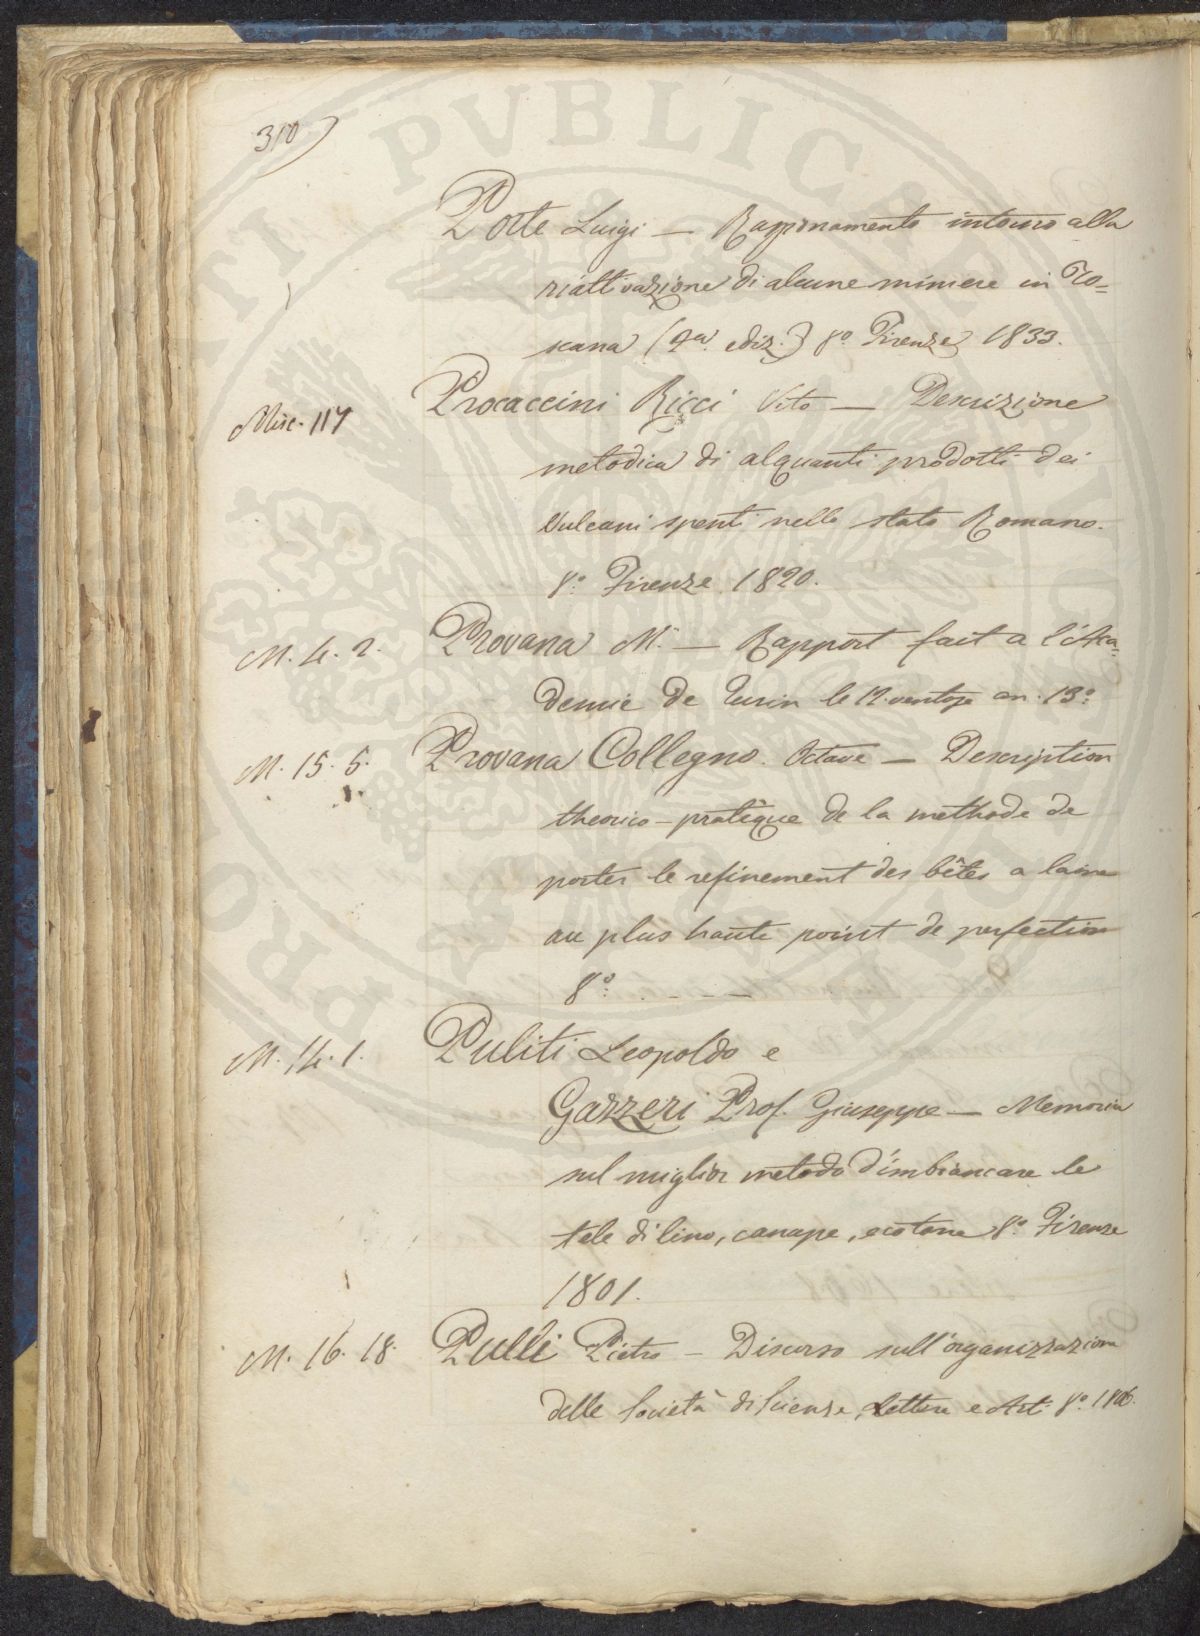 310)
Porte Luigi — Ragionamento intorno alla
riattivazione di alcune miniere in To=
scana (2ª. ediz.) 8º. Firenze 1833.
Misc. 117
Procaccini Ricci Vito — Descrizione
metodica di alquanti prodotti dei
Vulcani spenti nello stato Romano.
8º. Firenze 1820.
M. 4. 2.
Provana M.r — Rapport fait a l'Aca=
demie de Turin le 12. ventose an. 13º:
M. 15. 5.
Provana Collegno. Octave — Description
theorico-pratique de la methode de
porter le refinement des bêtes a laine
au plus haute point de perfection
8º. . - - —
M. 14. 1.
Puliti Leopoldo e
Gazzeri Prof. Giuseppe — Memoria
sul miglior metodo d'imbiancare le
tele di lino, canape, e cotone 8º. Firenze
1801.
M. 16. 18.
Pulli Pietro — Discorso sull'organizzazione
delle Società di Scienze, Lettere e Arti 8º. 1806.
PROTI PVBLICAE